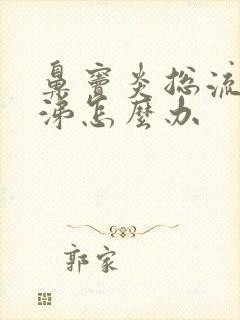 鼻窦炎总流
涕怎麽办
郭家